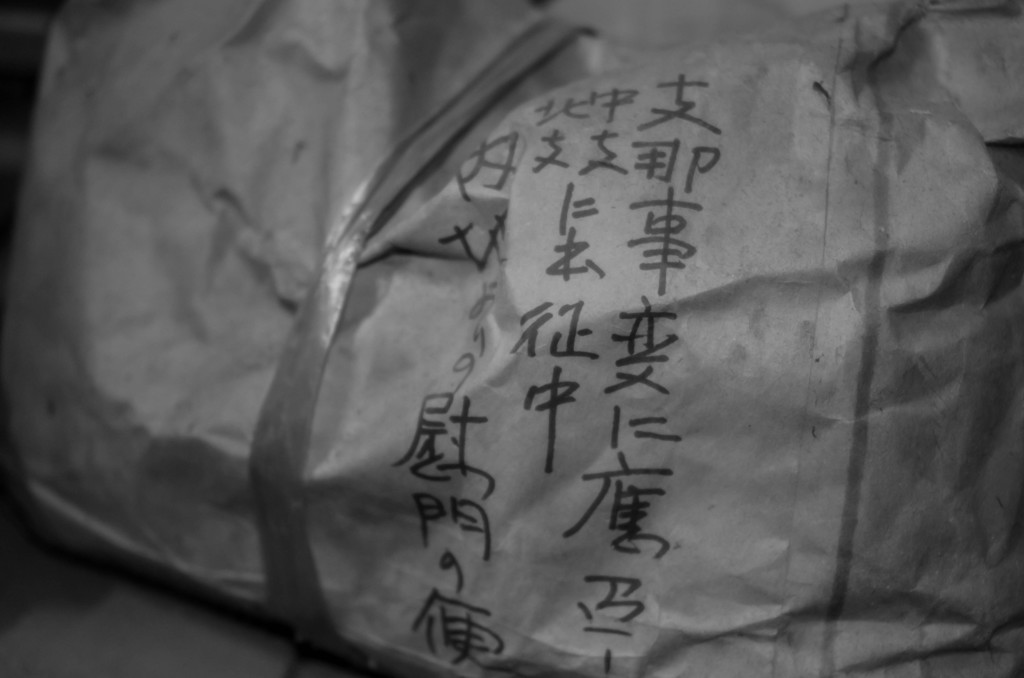 支那事変に應召
中支
北支に出征中
母父よりの慰問の便